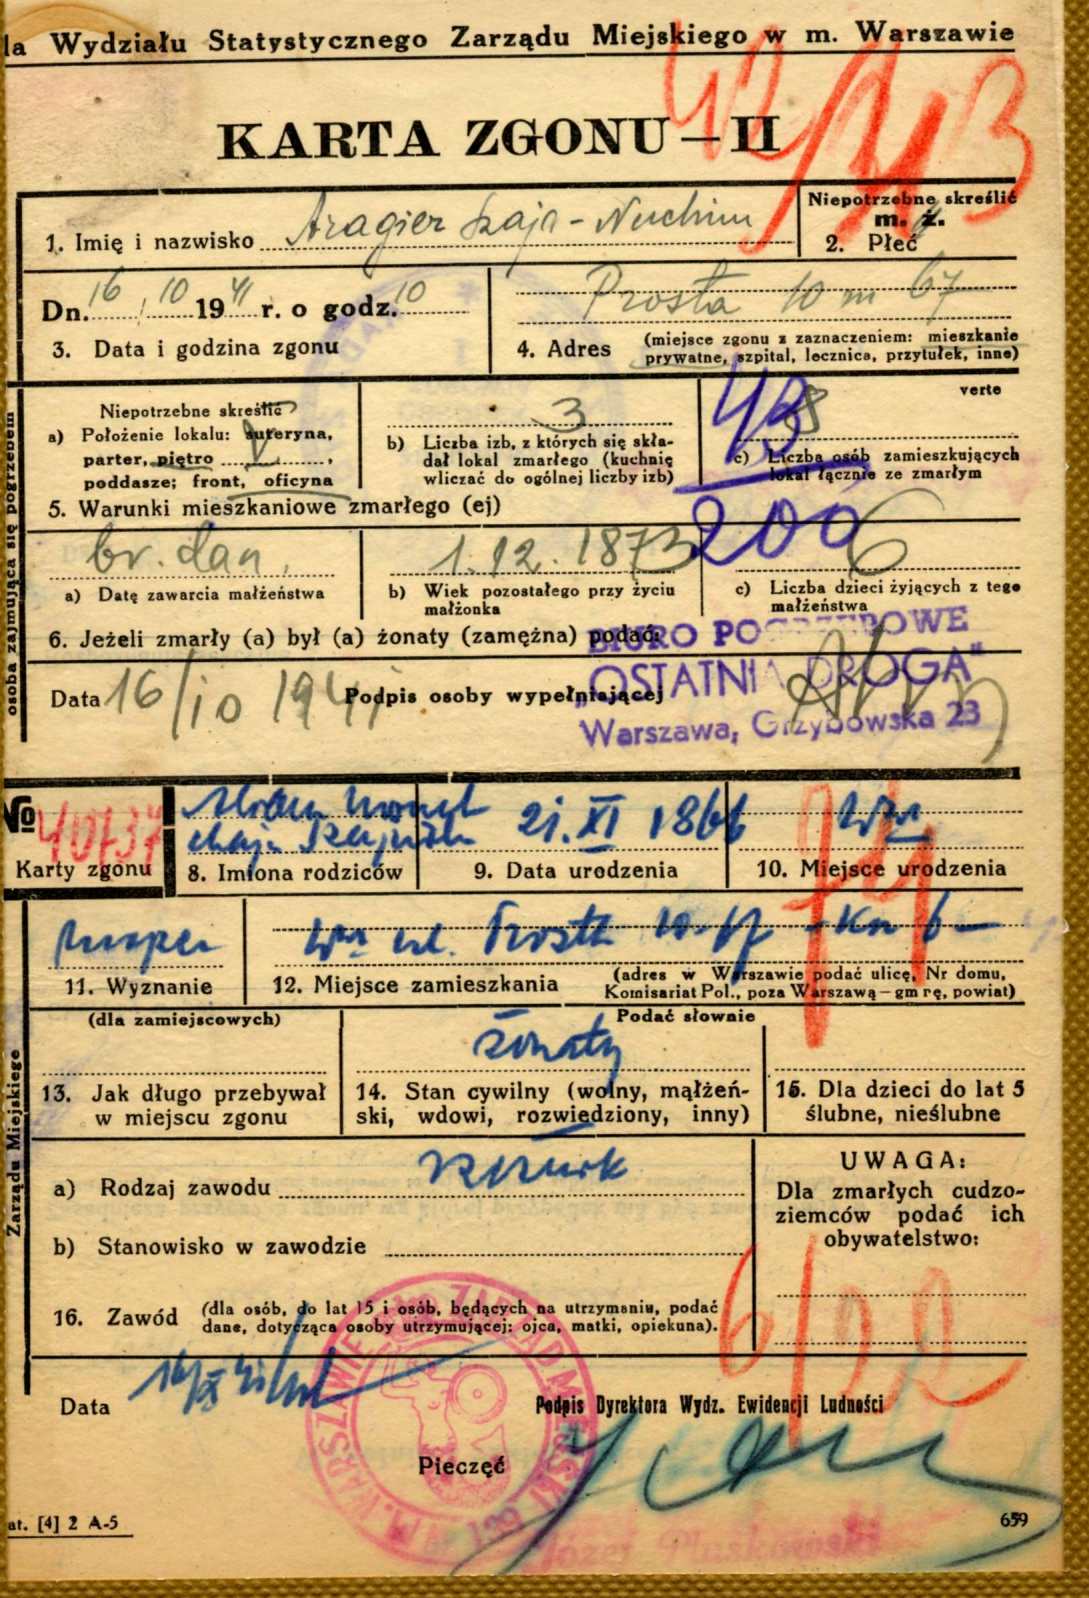 la Wydziału Statystycznego Zarządu Miejskiego w m. Warszawie
KARTA ZGONU — II
1. Imię i nazwisko Szaja-Nuchim
Niepotrzebne skreślić
m. ż.
2. Płeć
Dn. 16 10 1941 r. o godz. 10
3. Data i godzina zgonu
Prosta 10 m 67
4. Adres (miejsce zgonu z zaznaczeniem: mieszkanie
prywatne, szpital, lecznica, przytułek, inne)
verte
osoba zajmująca się pogrzebem
Niepotrzebne skreślić
a) Położenie lokalu: suteryna,
parter, piętro
poddasze; front, oficyna
3
b) Liczba izb, z których się skła-
dał lokal zmarłego (kuchnię
wliczać do ogólnej liczby izb)
8
43
200
c) Liczba osób zamieszkujących
lokal łącznie ze zmarłym
5. Warunki mieszkaniowe zmarłego (ej)
br. dan.
a) Datę zawarcia małżeństwa
1. 12. 1873
b) Wiek pozostałego przy życiu
małżonka
6
c) Liczba dzieci żyjących z tego
małżeństwa
6. Jeżeli zmarły (a) był (a) żonaty (zamężna) podać:
BIURO POGRZEBOWE
„OSTATNIA DROGA"
Warszawa, Grzybowska 23
Data 16/10 1941 Podpis osoby wypełniającej
№ 40737
Karty zgonu
8. Imiona rodziców
21. XI 1866
9. Data urodzenia
10. Miejsce urodzenia
Zarządu Miejskiego
11. Wyznanie
ul. Prosta 10-67
12. Miejsce zamieszkania (adres w Warszawie podać ulicę, Nr domu,
Komisariat Pol., poza Warszawą — gm nę, powiat)
(dla zamiejscowych)
13. Jak długo przebywał
w miejscu zgonu
Podać słownie
żonaty
14. Stan cywilny (wolny, małżeń-
ski, wdowi, rozwiedziony, inny)
15. Dla dzieci do lat 5
ślubne, nieślubne
a) Rodzaj zawodu
b) Stanowisko w zawodzie
16. Zawód (dla osób, do lat 15 i osób, będących na utrzymaniu, podać
dane, dotycząca osoby utrzymującej: ojca, matki, opiekuna).
UWAGA:
Dla zmarłych cudzo-
ziemców podać ich
obywatelstwo:
Data
Podpis Dyrektora Wydz. Ewidencji Ludności
Pieczęć
at. [4] 2 A-5
659